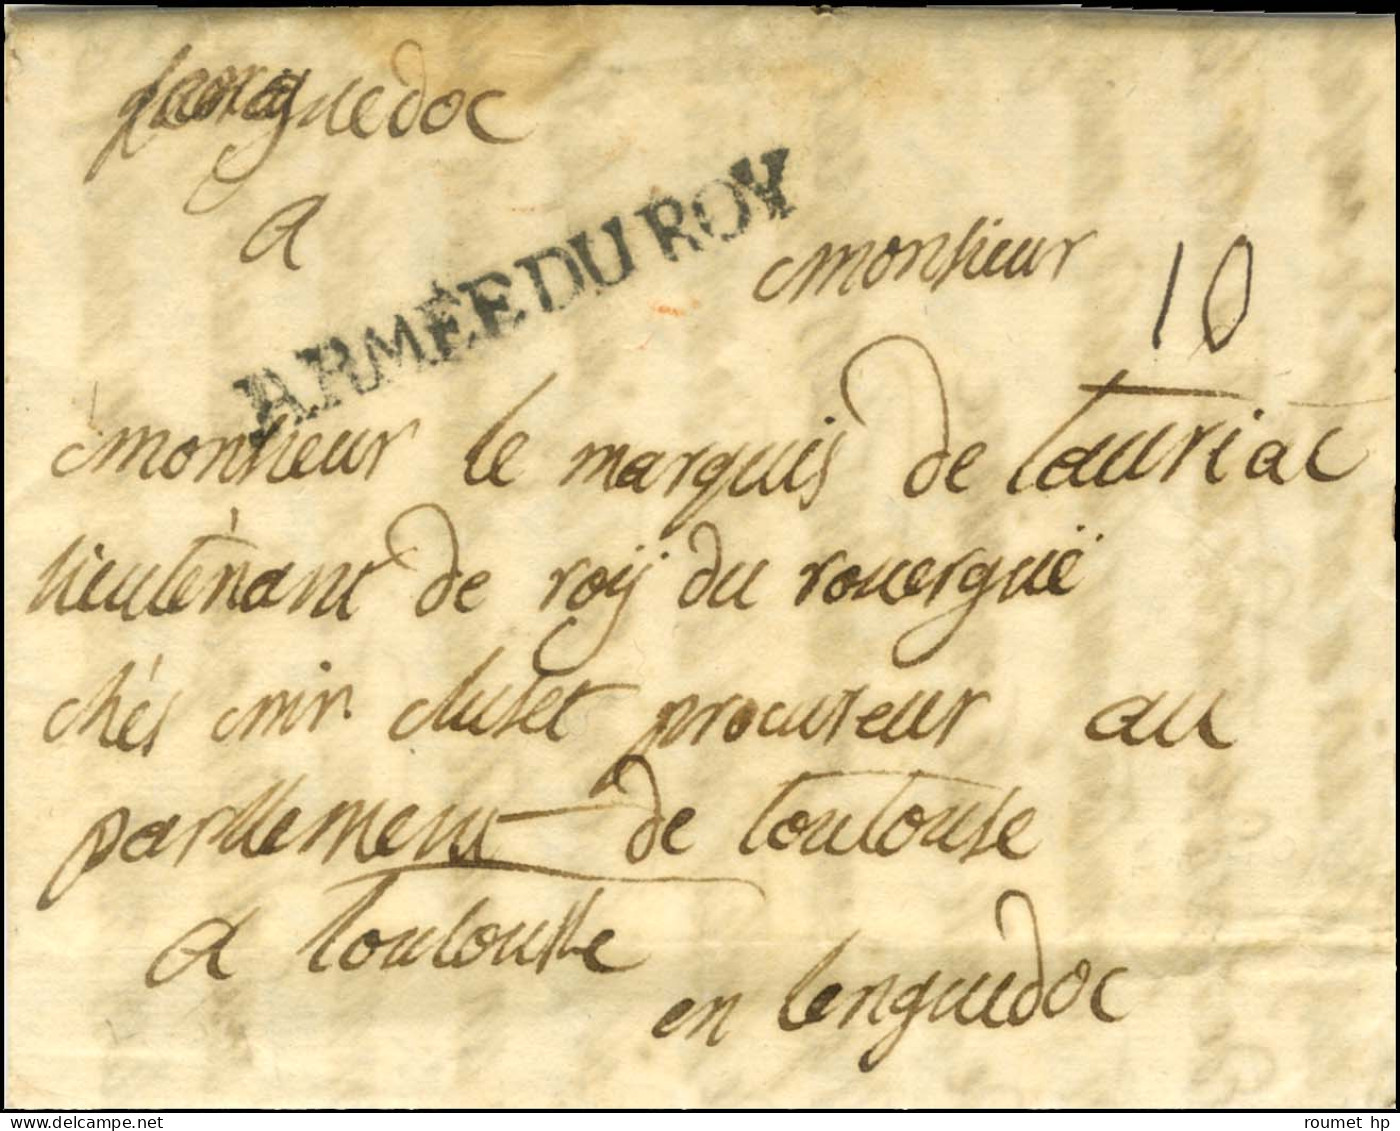 Lenguedoc
A
ARMÉE DU ROY
monsieur
10
monsieur le marquis de tauriac
lieutenant de roÿ du rouergue
chés mr. cluset procureur au
parllement de toulouse
a toulousse
en lenguedoc
www.delcampe.net
roumet hp